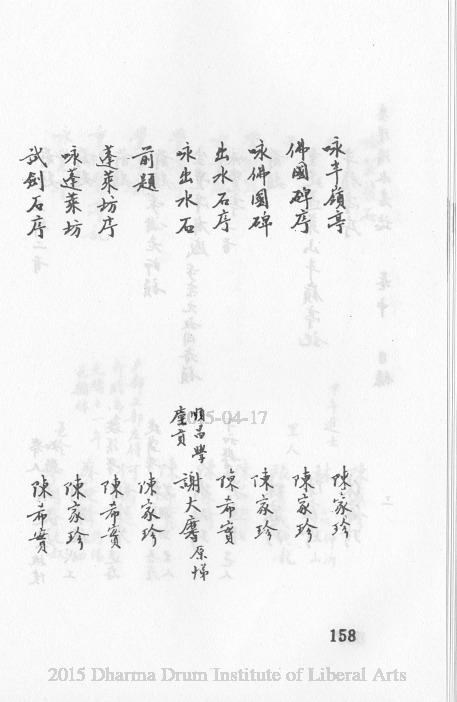 咏半嶺亭 陳家珍
佛國碑序 陳家珍
咏佛國碑 陳家珍
出水石序 陳希實
咏出水石 順昌學廩貢 謝大賡 原悌
前題 陳家珍
蓬萊坊序 陳希實
咏蓬萊坊 陳家珍
試劍石序 陳希實
-04-17
158
2015 Dharma Drum Institute of Liberal Arts